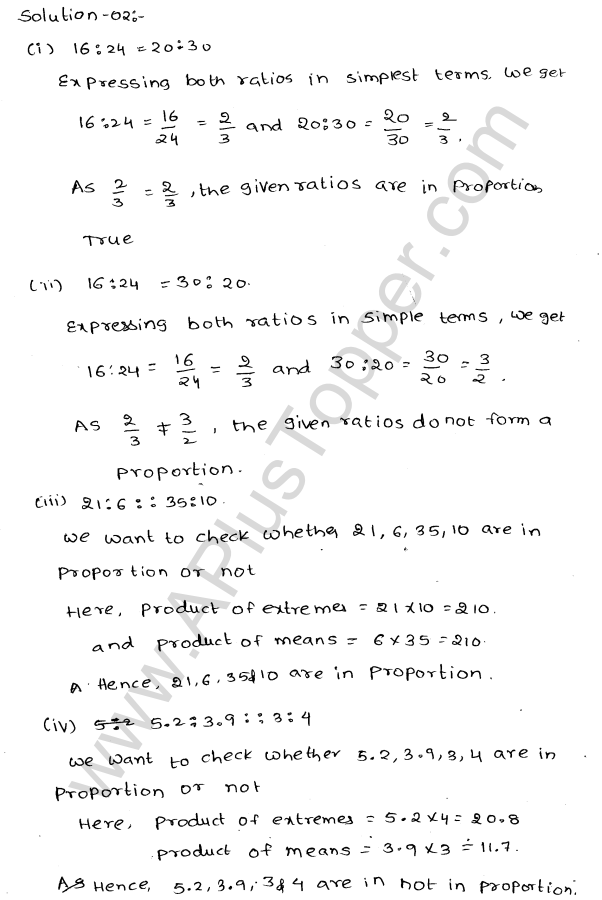 Solution-02:-
(i) 16:24 = 20:30
Expressing both ratios in simplest terms. We get
16:24 = 16/24 = 2/3 and 20:30 = 20/30 = 2/3.
As 2/3 = 2/3, the given ratios are in proportion
True
(ii) 16:24 = 30:20.
Expressing both ratios in simple terms, we get
16:24 = 16/24 = 2/3 and 30:20 = 30/20 = 3/2.
As 2/3 ≠ 3/2, the given ratios do not form a
proportion.
(iii) 21:6 :: 35:10.
we want to check whether 21, 6, 35, 10 are in
proportion or not
Here, product of extremes = 21 x 10 = 210.
and product of means = 6 x 35 = 210.
Hence, 21, 6, 35 & 10 are in proportion.
(iv) 5.2:3.9 :: 3:4
we want to check whether 5.2, 3.9, 3, 4 are in
proportion or not
Here, product of extremes = 5.2 x 4 = 20.8
product of means = 3.9 x 3 = 11.7.
Hence, 5.2, 3.9, 3 & 4 are in not in proportion.
www.APlusTopper.com